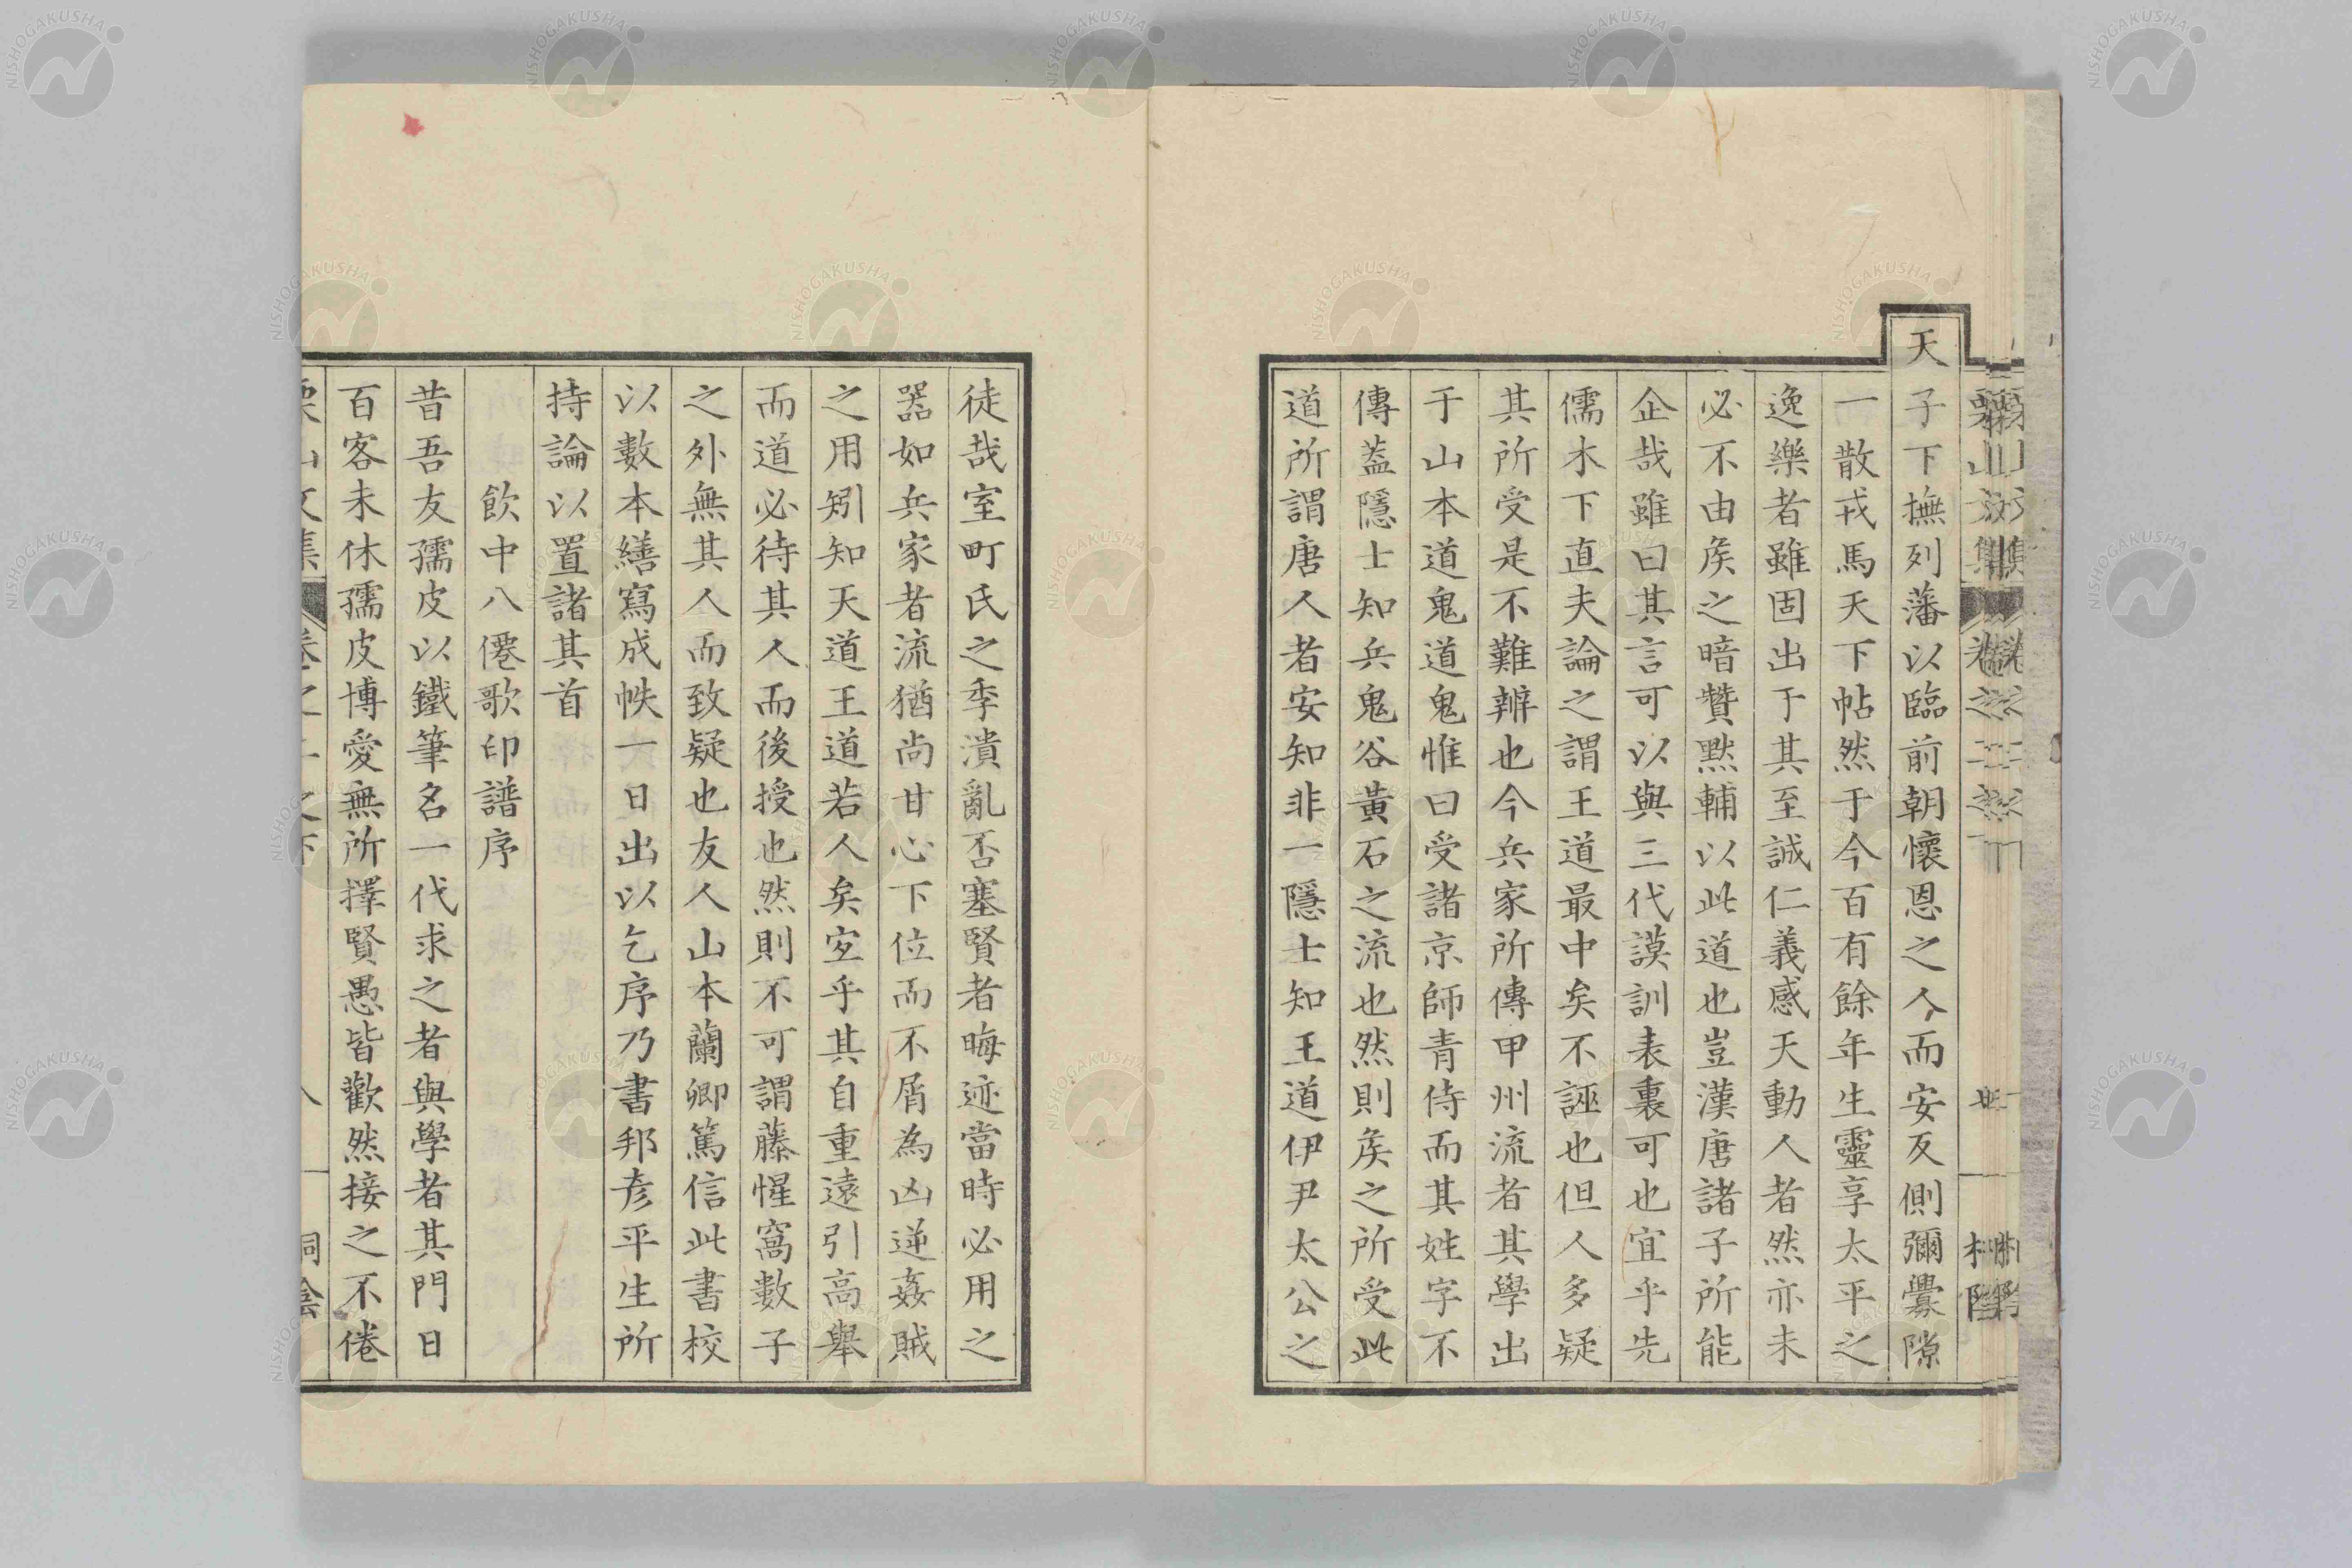 天子下撫列藩以臨前朝懷恩之人而安反側彌釁隙
一散戎馬天下帖然于今百有餘年生靈享太平之
逸樂者雖固出于其至誠仁義感天動人者然亦未
必不由矦之暗贊默輔以此道也豈漢唐諸子所能
企哉雖曰其言可以與三代謨訓表裏可也宜乎先
儒木下直夫論之謂王道最中矣不誣也但人多疑
其所受是不難辨也今兵家所傳甲州流者其學出
于山本道鬼道鬼惟曰受諸京師青侍而其姓字不
傳蓋隱士知兵鬼谷黃石之流也然則矦之所受此
道所謂唐人者安知非一隱士知王道伊尹太公之
徒哉室町氏之季潰亂否塞賢者晦迹當時必用之
器如兵家者流猶尚甘心下位而不屑為凶逆姦賊
之用矧知天道王道若人矣宜乎其自重遠引高舉
而道必待其人而後授也然則不可謂藤惺窩數子
之外無其人而致疑也友人山本蘭卿篤信此書校
以數本繕寫成帙一日出以乞序乃書邦彦平生所
持論以置諸其首
飲中八僊歌印譜序
昔吾友孺皮以鐵筆名一代求之者與學者其門日
百客未休孺皮博愛無所擇賢愚皆歡然接之不倦
栗山文集
NISHOGAKUSHA